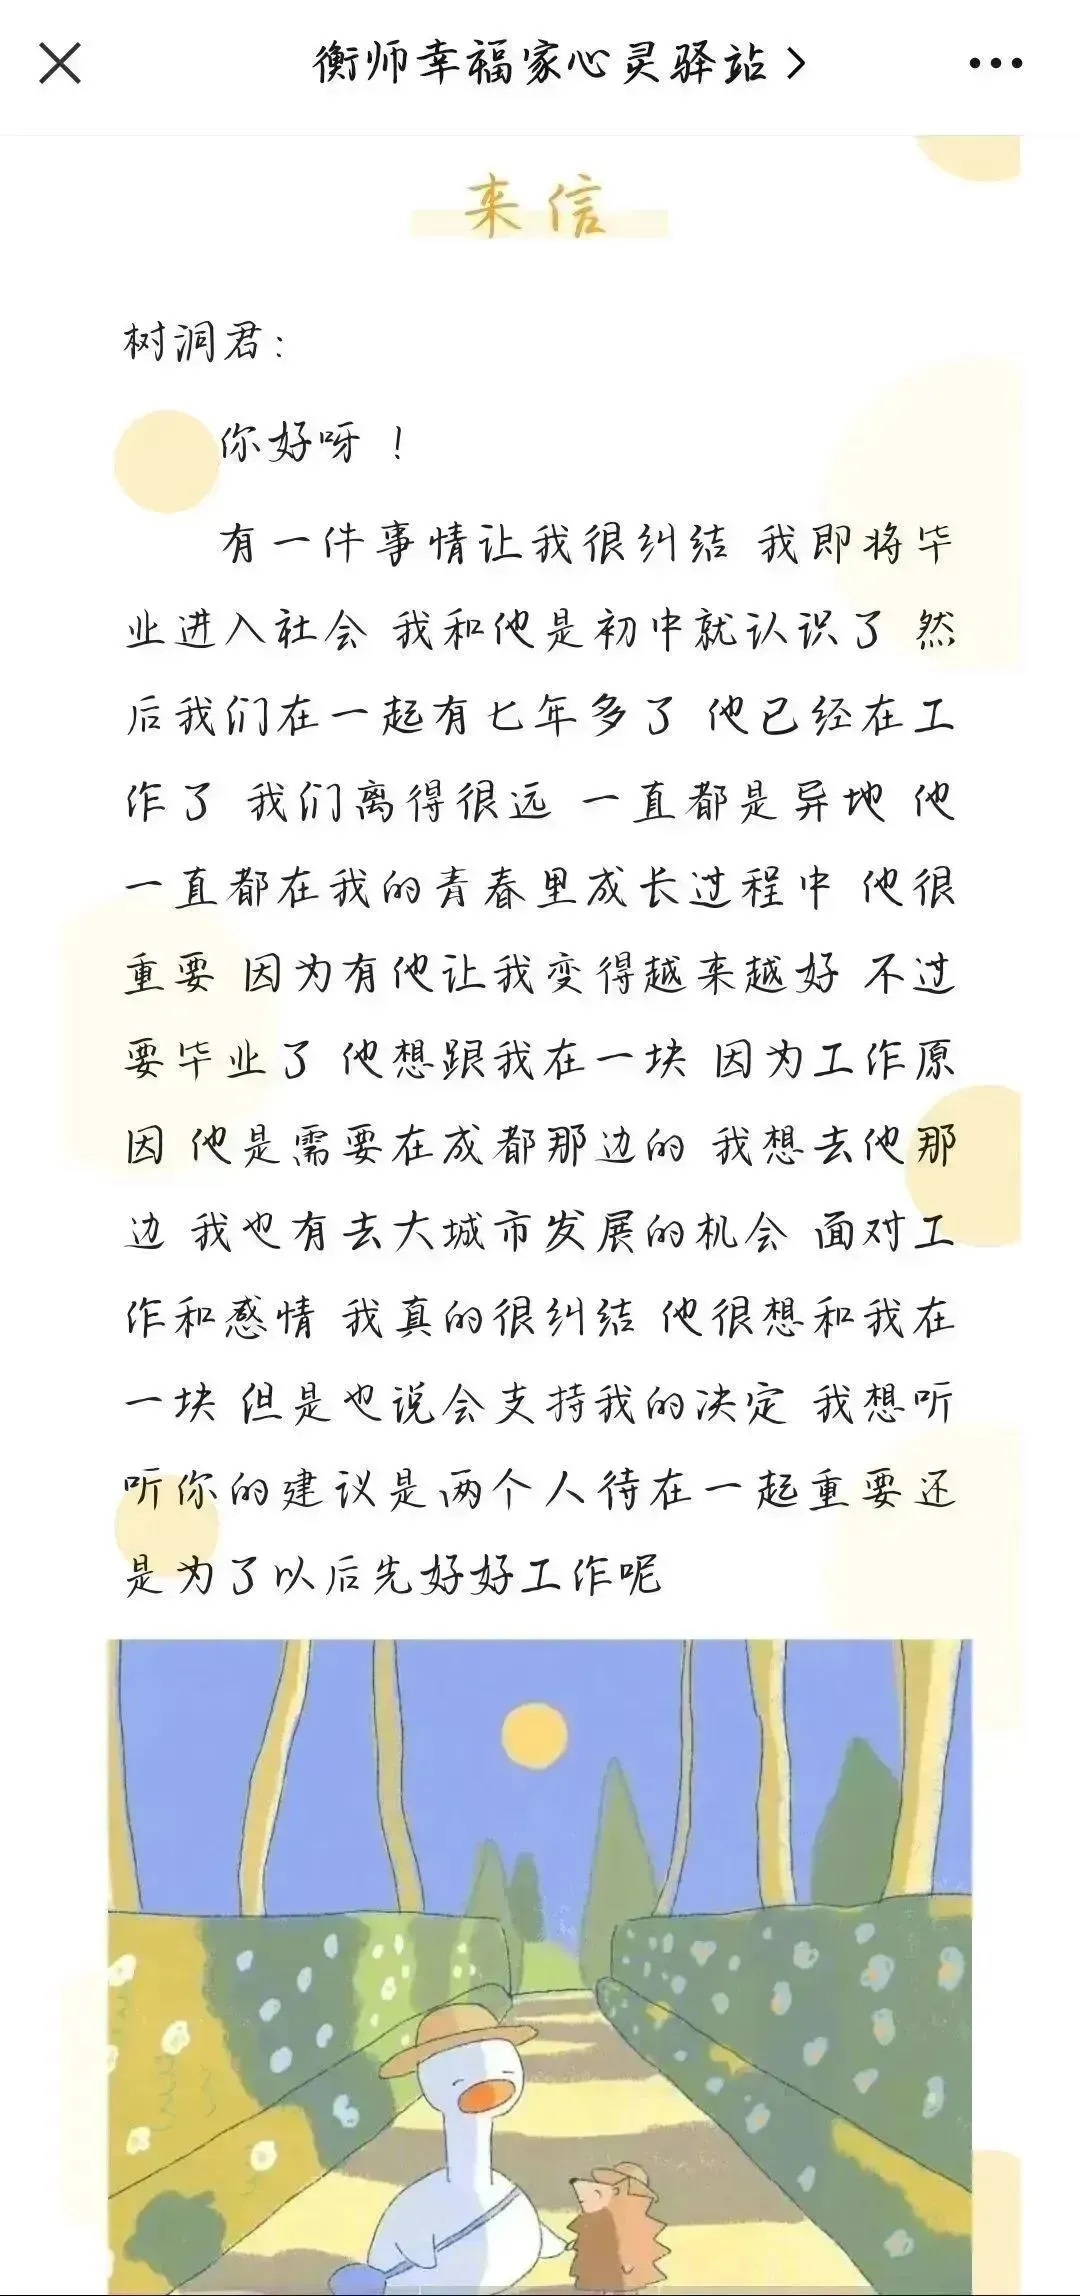 衡师幸福家心灵驿站
来信
树洞君：
你好呀！
有一件事情让我很纠结 我即将毕
业进入社会 我和他是初中就认识了 然
后我们在一起有七年多了 他已经在工
作了 我们离得很远 一直都是异地 他
一直都在我的青春里成长过程中 他很
重要 因为有他让我变得越来越好 不过
要毕业了 他想跟我在一块 因为工作原
因 他是需要在成都那边的 我想去他那
边 我也有去大城市发展的机会 面对工
作和感情 我真的很纠结 他很想和我在
一块 但是也说会支持我的决定 我想听
听你的建议是两个人待在一起重要还
是为了以后先好好工作呢